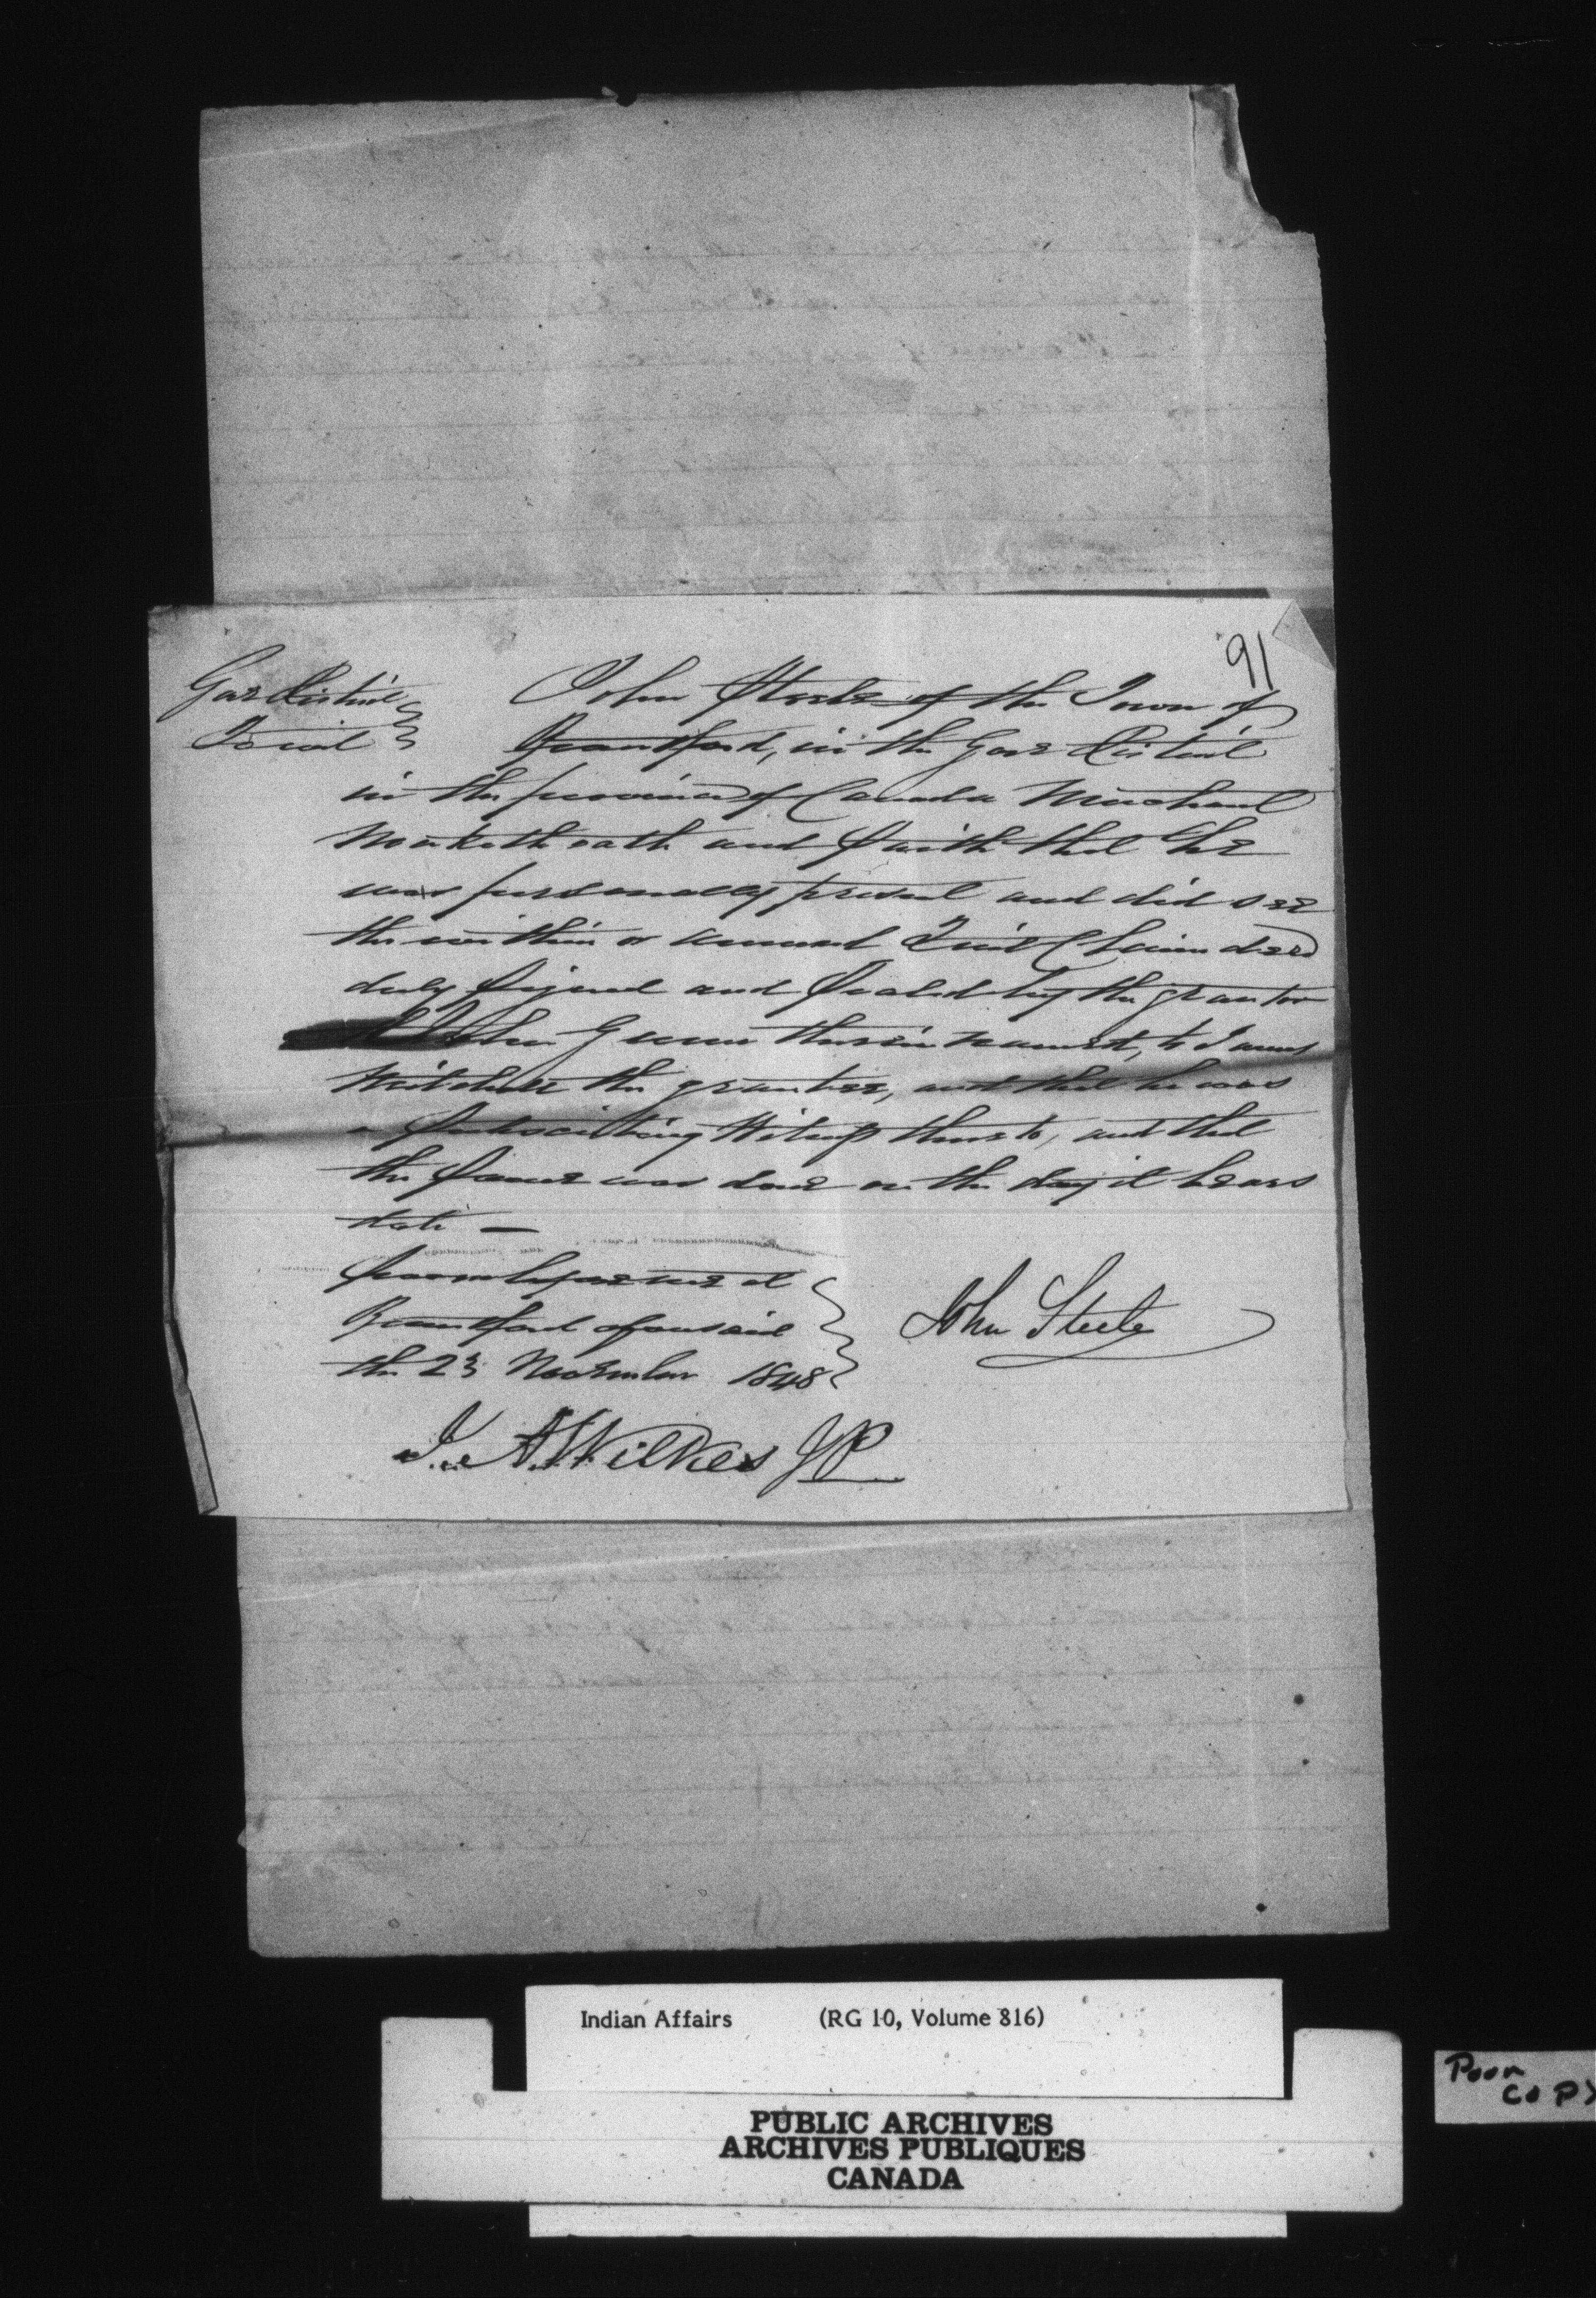 91
Gore District
To wit
John Steele of the Town of
Brantford, in the Gore District
in the province of Canada Merchant
Maketh oath and Saith that he
was personally present and did see
the within or annexed Quit Claim deed
duly Signed and Sealed by the grantor
John Green therein named, to James
the grantee, and that he was
a Subscribing Witness thereto, and that
the Same was done on the day it bears
date —
Sworn before me at
Brantford aforesaid
the 23 November 1848
John Steele
J. A. Wilkes JP
Indian Affairs (RG 10, Volume 816)
PUBLIC ARCHIVES
ARCHIVES PUBLIQUES
CANADA
Poor
COPY